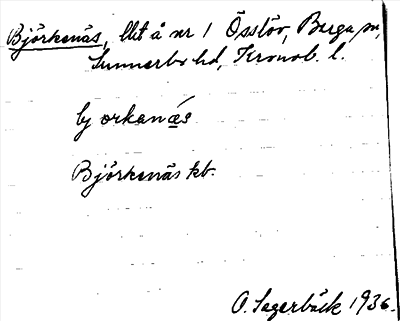 Björkenäs, llit å nr 1 Össlöv, Berga sn,
Sunnerbo hd, Kronob. l.
bjorkanæs
Björkenäs kb.
O. Sagerbäck 1936.